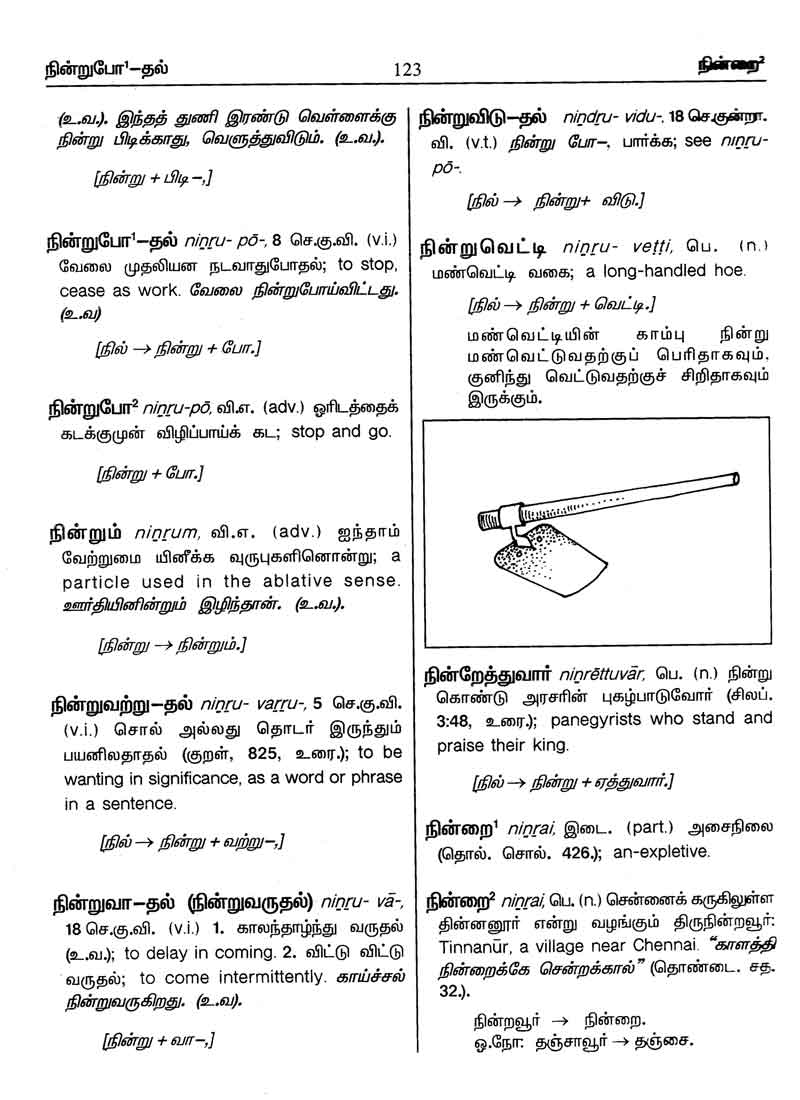 நின்றுபோ¹–தல்
123
நின்றை²
(உ.வ.). இந்தத் துணி இரண்டு வெள்ளைக்கு
நின்று பிடிக்காது, வெளுத்துவிடும். (உ.வ.).
[நின்று + பிடி–,]
நின்றுபோ¹–தல் niṉṟu- pō-, 8 செ.கு.வி. (v.i.)
வேலை முதலியன நடவாதுபோதல்; to stop,
cease as work. வேலை நின்றுபோய்விட்டது.
(உ.வ)
[நில் → நின்று + போ.]
நின்றுபோ² niṉṟu-pō, வி.எ. (adv.) ஓரிடத்தைக்
கடக்குமுன் விழிப்பாய்க் கட; stop and go.
[நின்று + போ.]
நின்றும் niṉṟum, வி.எ. (adv.) ஐந்தாம்
வேற்றுமை யினீக்க வுருபுகளினொன்று; a
particle used in the ablative sense.
ஊர்தியினின்றும் இழிந்தான். (உ.வ.).
[நின்று → நின்றும்.]
நின்றுவற்று–தல் niṉṟu- vaṟṟu-, 5 செ.கு.வி.
(v.i.) சொல் அல்லது தொடர் இருந்தும்
பயனிலதாதல் (குறள், 825, உரை.); to be
wanting in significance, as a word or phrase
in a sentence.
[நில் → நின்று + வற்று–,]
நின்றுவா–தல் (நின்றுவருதல்) niṉṟu- vā-,
18 செ.கு.வி. (v.i.) 1. காலந்தாழ்ந்து வருதல்
(உ.வ.); to delay in coming. 2. விட்டு விட்டு
வருதல்; to come intermittently. காய்ச்சல்
நின்றுவருகிறது. (உ.வ).
[நின்று + வா–,]
நின்றுவிடு–தல் niṉdṟu- vidu-, 18 செ.குன்றா.
வி. (v.t.) நின்று போ–, பார்க்க; see niṉṟu-
pō-.
[நில் → நின்று+ விடு.]
நின்றுவெட்டி niṉṟu- veṭṭi, பெ. (n.)
மண்வெட்டி வகை; a long-handled hoe.
[நில் → நின்று + வெட்டி.]
மண்வெட்டியின் காம்பு நின்று
மண்வெட்டுவதற்குப் பெரிதாகவும்,
குனிந்து வெட்டுவதற்குச் சிறிதாகவும்
இருக்கும்.
நின்றேத்துவார் niṉṟēttuvār, பெ. (n.) நின்று
கொண்டு அரசரின் புகழ்பாடுவோர் (சிலப்.
3:48, உரை.); panegyrists who stand and
praise their king.
[நில் → நின்று + ஏத்துவார்.]
நின்றை¹ niṉṟai, இடை. (part.) அசைநிலை
(தொல். சொல். 426.); an-expletive.
நின்றை² niṉṟai, பெ. (n.) சென்னைக் கருகிலுள்ள
தின்னனூர் என்று வழங்கும் திருநின்றவூர்:
Tinnanūr, a village near Chennai. “காளத்தி
நின்றைக்கே சென்றக்கால்” (தொண்டை. சத.
32.).
நின்றவூர் → நின்றை.
ஒ.நோ: தஞ்சாவூர் → தஞ்சை.